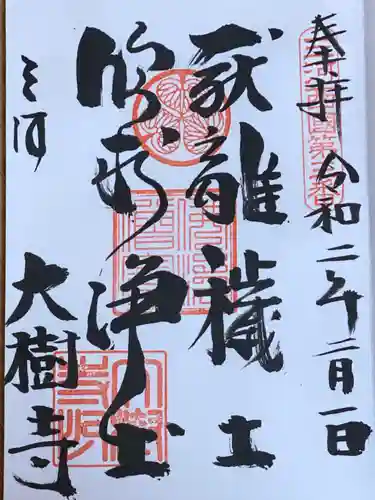 奉拝 令和二年二月一日
厭離穢土
欣求浄土
三河
大樹寺